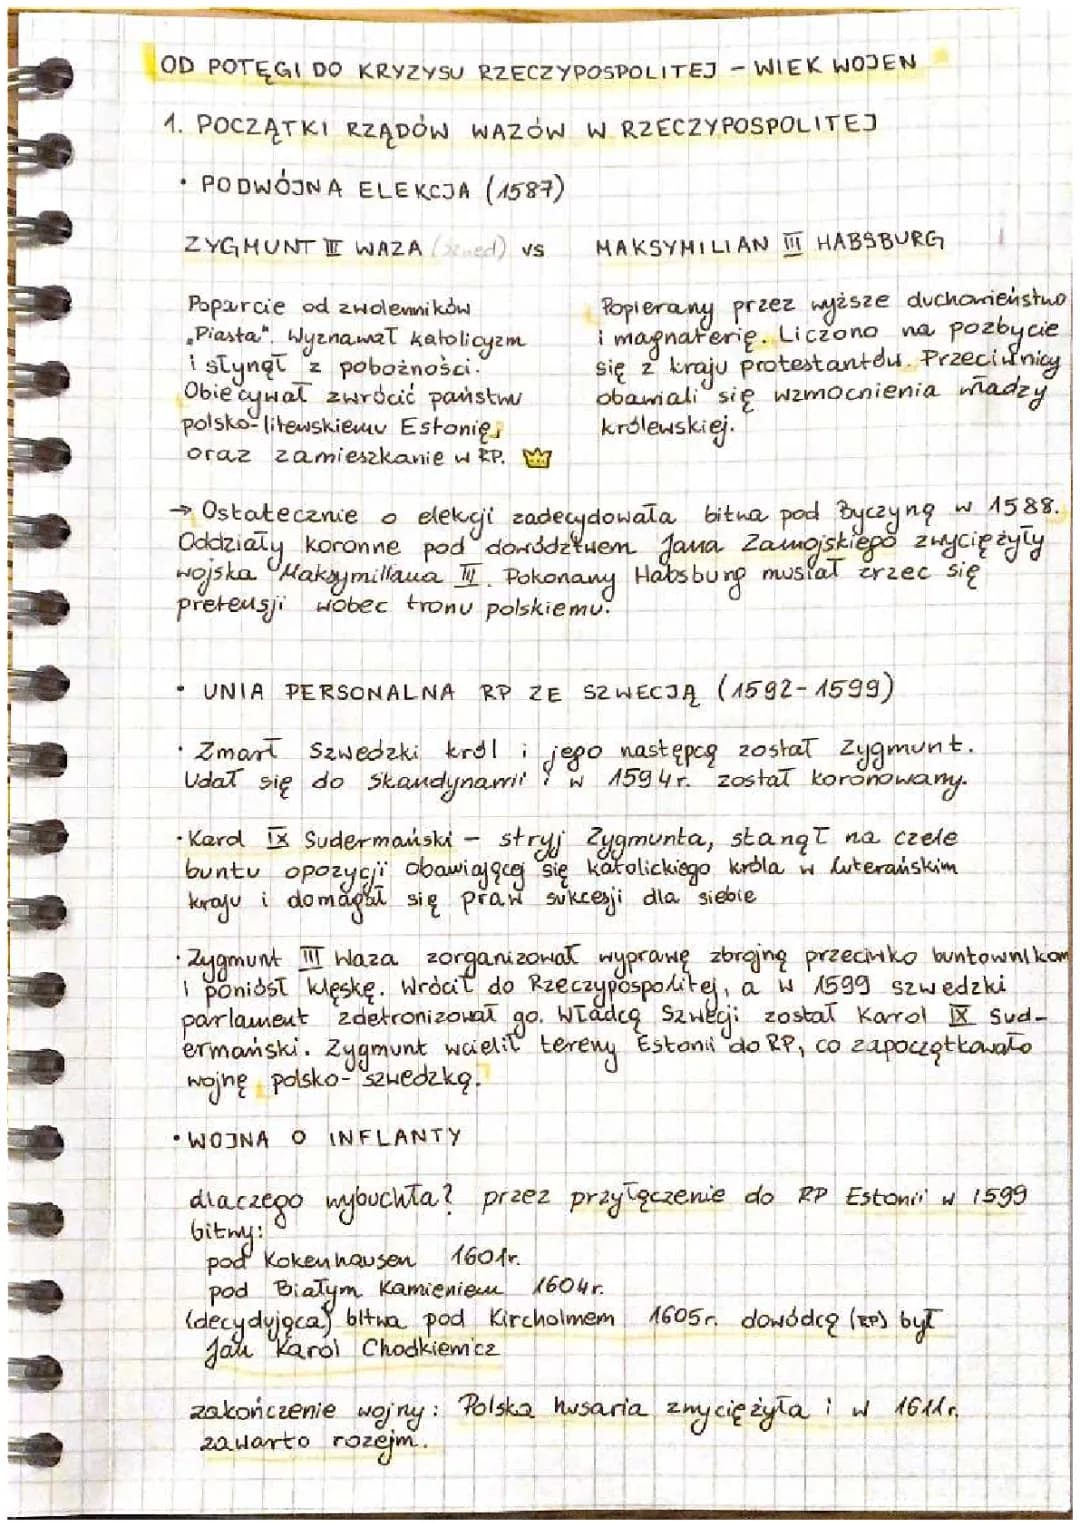 OD POTĘGI DO KRYZYSU RZECZYPOSPOLITEJ – WIEK WOJEN
1. POCZĄTKI RZĄDÓW WAZÓW W RZECZYPOSPOLITEJ
• PODWÓJNA ELEKCJA (1587)
ZYGMUNT III WAZA (szwed) vs
MAKSYMILIAN III HABSBURG
Poparcie od zwolenników
„Piasta". Wyznawał katolicyzm
i słynął z pobożności.
Obiecywał zwrócić państwu
polsko-litewskiemu Estonię,
oraz zamieszkanie w RP.
Popierany przez wyższe duchowieństwo
i magnaterię. Liczono na pozbycie
się z kraju protestantów. Przeciwnicy
obawiali się wzmocnienia władzy
królewskiej.
→ Ostatecznie o elekcji zadecydowała bitwa pod Byczyną w 1588.
Oddziały koronne pod dowództwem Jana Zamojskiego zwyciężyły
wojska Maksymiliana III. Pokonany Habsburg musiał zrzec się
pretensji wobec tronu polskiemu.
• UNIA PERSONALNA RP ZE SZWECJĄ (1592-1599)
• Zmarł Szwedzki król i jego następcą został Zygmunt.
Udał się do Skandynawii i w 1594r. został koronowany.
• Karol IX Sudermański – stryj Zygmunta, stanął na czele
buntu opozycji obawiającej się katolickiego króla w luterańskim
kraju i domagał się praw sukcesji dla siebie
• Zygmunt III Waza zorganizował wyprawę zbrojną przeciwko buntownikom
i poniósł klęskę. Wrócił do Rzeczypospolitej, a w 1599 szwedzki
parlament zdetronizował go. Władcą Szwecji został Karol IX Sud-
ermański. Zygmunt wcielił tereny Estonii do RP, co zapoczątkowało
wojnę polsko-szwedzką.
• WOJNA O INFLANTY
dlaczego wybuchła? przez przyłączenie do RP Estonii w 1599
bitwy:
pod Kokenhausen 1601r.
pod Białym Kamieniem 1604r.
(decydująca) bitwa pod Kircholmem 1605r. dowódcą (RP) był
Jan Karol Chodkiewicz
zakończenie wojny: Polska husaria zwyciężyła i w 1611r.
zawarto rozejm.